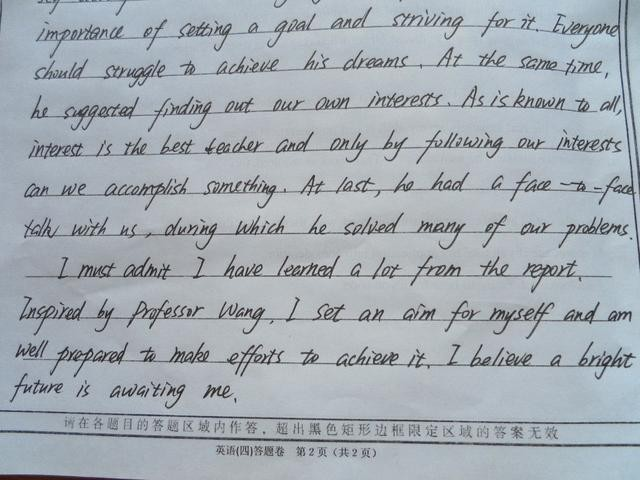 importance of setting a goal and striving for it. Everyone
should struggle to achieve his dreams. At the same time,
he suggested finding out our own interests. As is known to all,
interest is the best teacher and only by following our interests
can we accomplish something. At last, he had a face-to-face
talk with us, during which he solved many of our problems.
I must admit I have learned a lot from the report.
Inspired by Professor Wang, I set an aim for myself and am
well prepared to make efforts to achieve it. I believe a bright
future is awaiting me.
请在各题目的答题区域内作答，超出黑色矩形边框限定区域的答案无效
英语(四)答题卷 第2页（共2页）